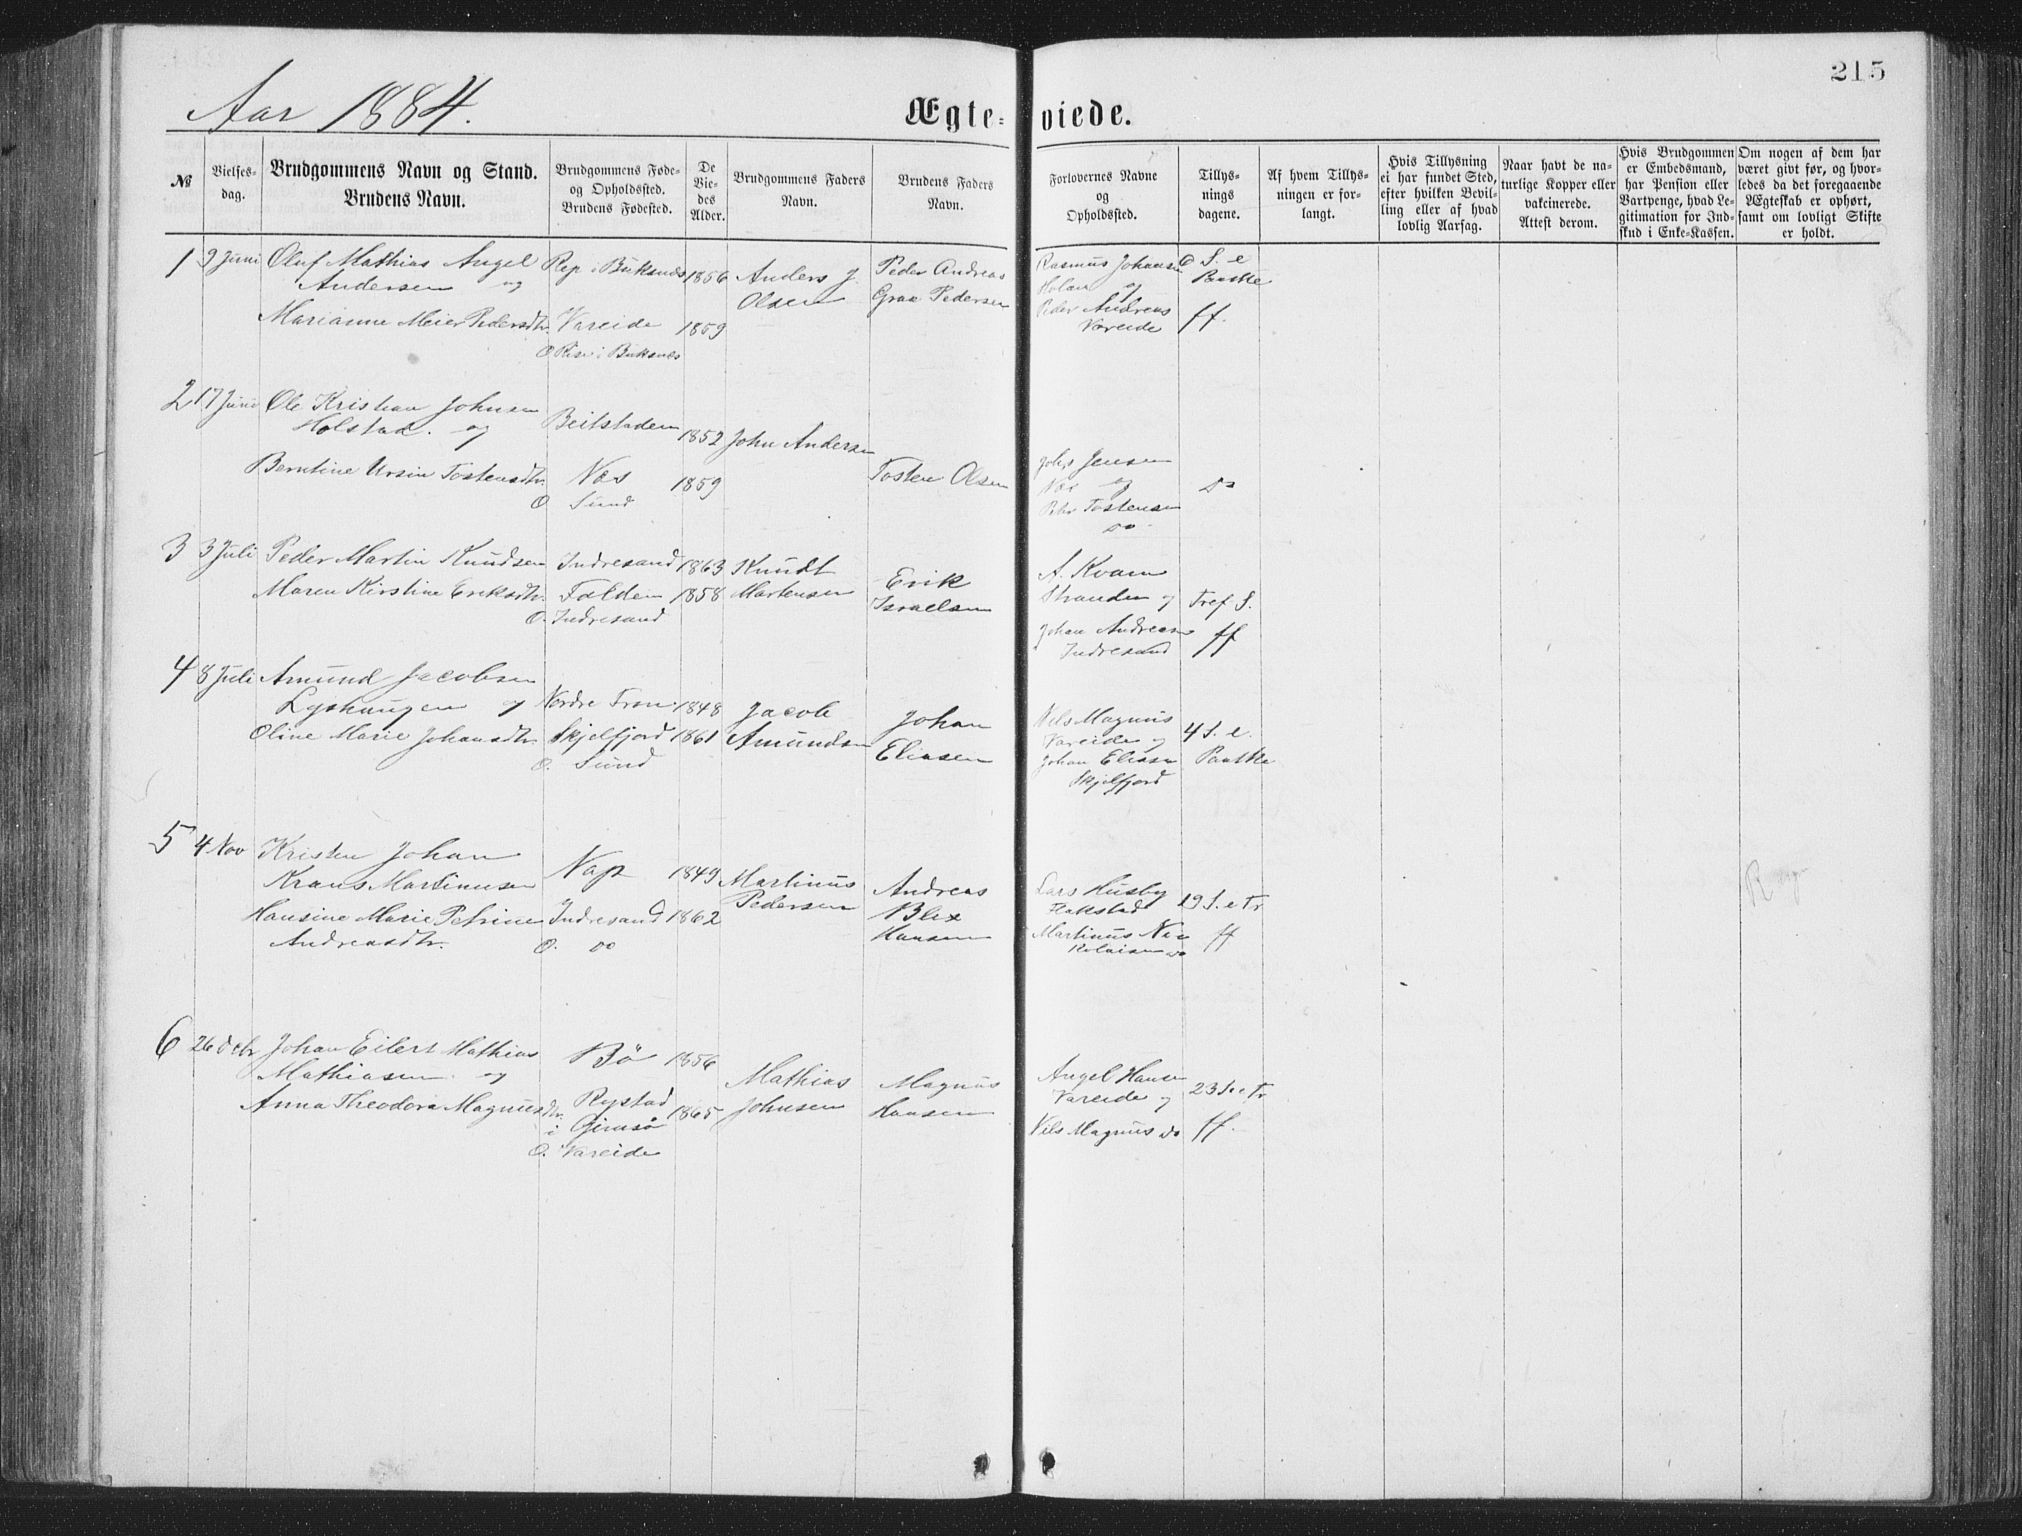 215
Aar 1884.
Ægteviede.
№
Vielsesdag.
Brudgommens Navn og Stand.
Brudens Navn.
Brudgommens Føde-
og Opholdssted.
Brudens Fødested.
De
Vie-
des
Alder.
Brudgommens Faders
Navn.
Brudens Faders
Navn.
Forlovernes Navne
og
Opholdssted.
Tillys-
nings
dagene.
Af hvem Tillys-
ningen er for-
langt.
Hvis Tillysning
ei har fundet Sted,
efter hvilken Bevil-
ling eller af hvad
lovlig Aarsag.
Naar havt de na-
turlige Kopper eller
vakcinerede.
Attest derom.
Hvis Brudgommen
er Embedsmand,
har Pension eller
Vartpenge, hvad Le-
gitimation for Ind-
skud i Enke-Kassen.
Om nogen af dem har
været givt før, og hvor-
ledes da det foregaaende
Ægteskab er ophørt,
samt om lovligt Skifte
er holdt.
1 9 Juni Oluf Mathias Angel
Andersen og
Marianne Meier Pedersdtr.
i Buksnæs
Vareide
O Rise i Buksnæs
1856
1859
Anders J.
Olsen
Peder Andreas
Graa Pedersen
Rasmus Johansen
Holan og
Peder Andreas
Vareide
6 S. e
Paaske
ff.
2 17 Juni Ole Kristian Johnsen
Holstad. og
Berntine Ursin Tostensdtr.
Beitstaden
Næs
O Sund
1852
1859
John Andersen
Tosten Olsen
Johs Jensen
Næs og
Peder Tostensen
do
do
3 3 Juli Peder Martin Knudsen
Maren Kirstine Eriksdtr.
Indresand
Folden
O. Indresand
1863
1858
Knudt
Martensen
Erik
Israelsen
A. Kvam
Stranden og
Johan Andreas
Indresand
Tref S.
ff
4 8 Juli Amund Jacobsen
Lyshaugen og
Oline Marie Johansdtr.
Nordre Fron
Skjelfjord
O. Sund
1848
1861
Jacob
Amundsen
Johan
Eliasen
Nils Magnus
Vareide og
Johan Eliasen
Skjelfjord
4 S. e.
Paaske
5 4 Nov Kristen Johan
Kraus Martinusen
Hansine Marie Petrine
Andreasdtr.
Nap
Indresand
O. do
1849
1862
Martinus
Pedersen
Andreas
Blix
Hansen
Lars Husby
Flakstad
Martinus Nic
kolaisen do
19 S. e Tr
ff
6 26 Decbr Johan Eilert Mathias
Mathiasen og
Anna Theodora Magnusdtr.
Bø
Rystad
i Gimsø
O. Vareide
1856
1865
Mathias
Johnsen
Magnus
Hansen
Angel Hansen
Vareide og
Nils Magnus do
23 S. e Tr
ff.